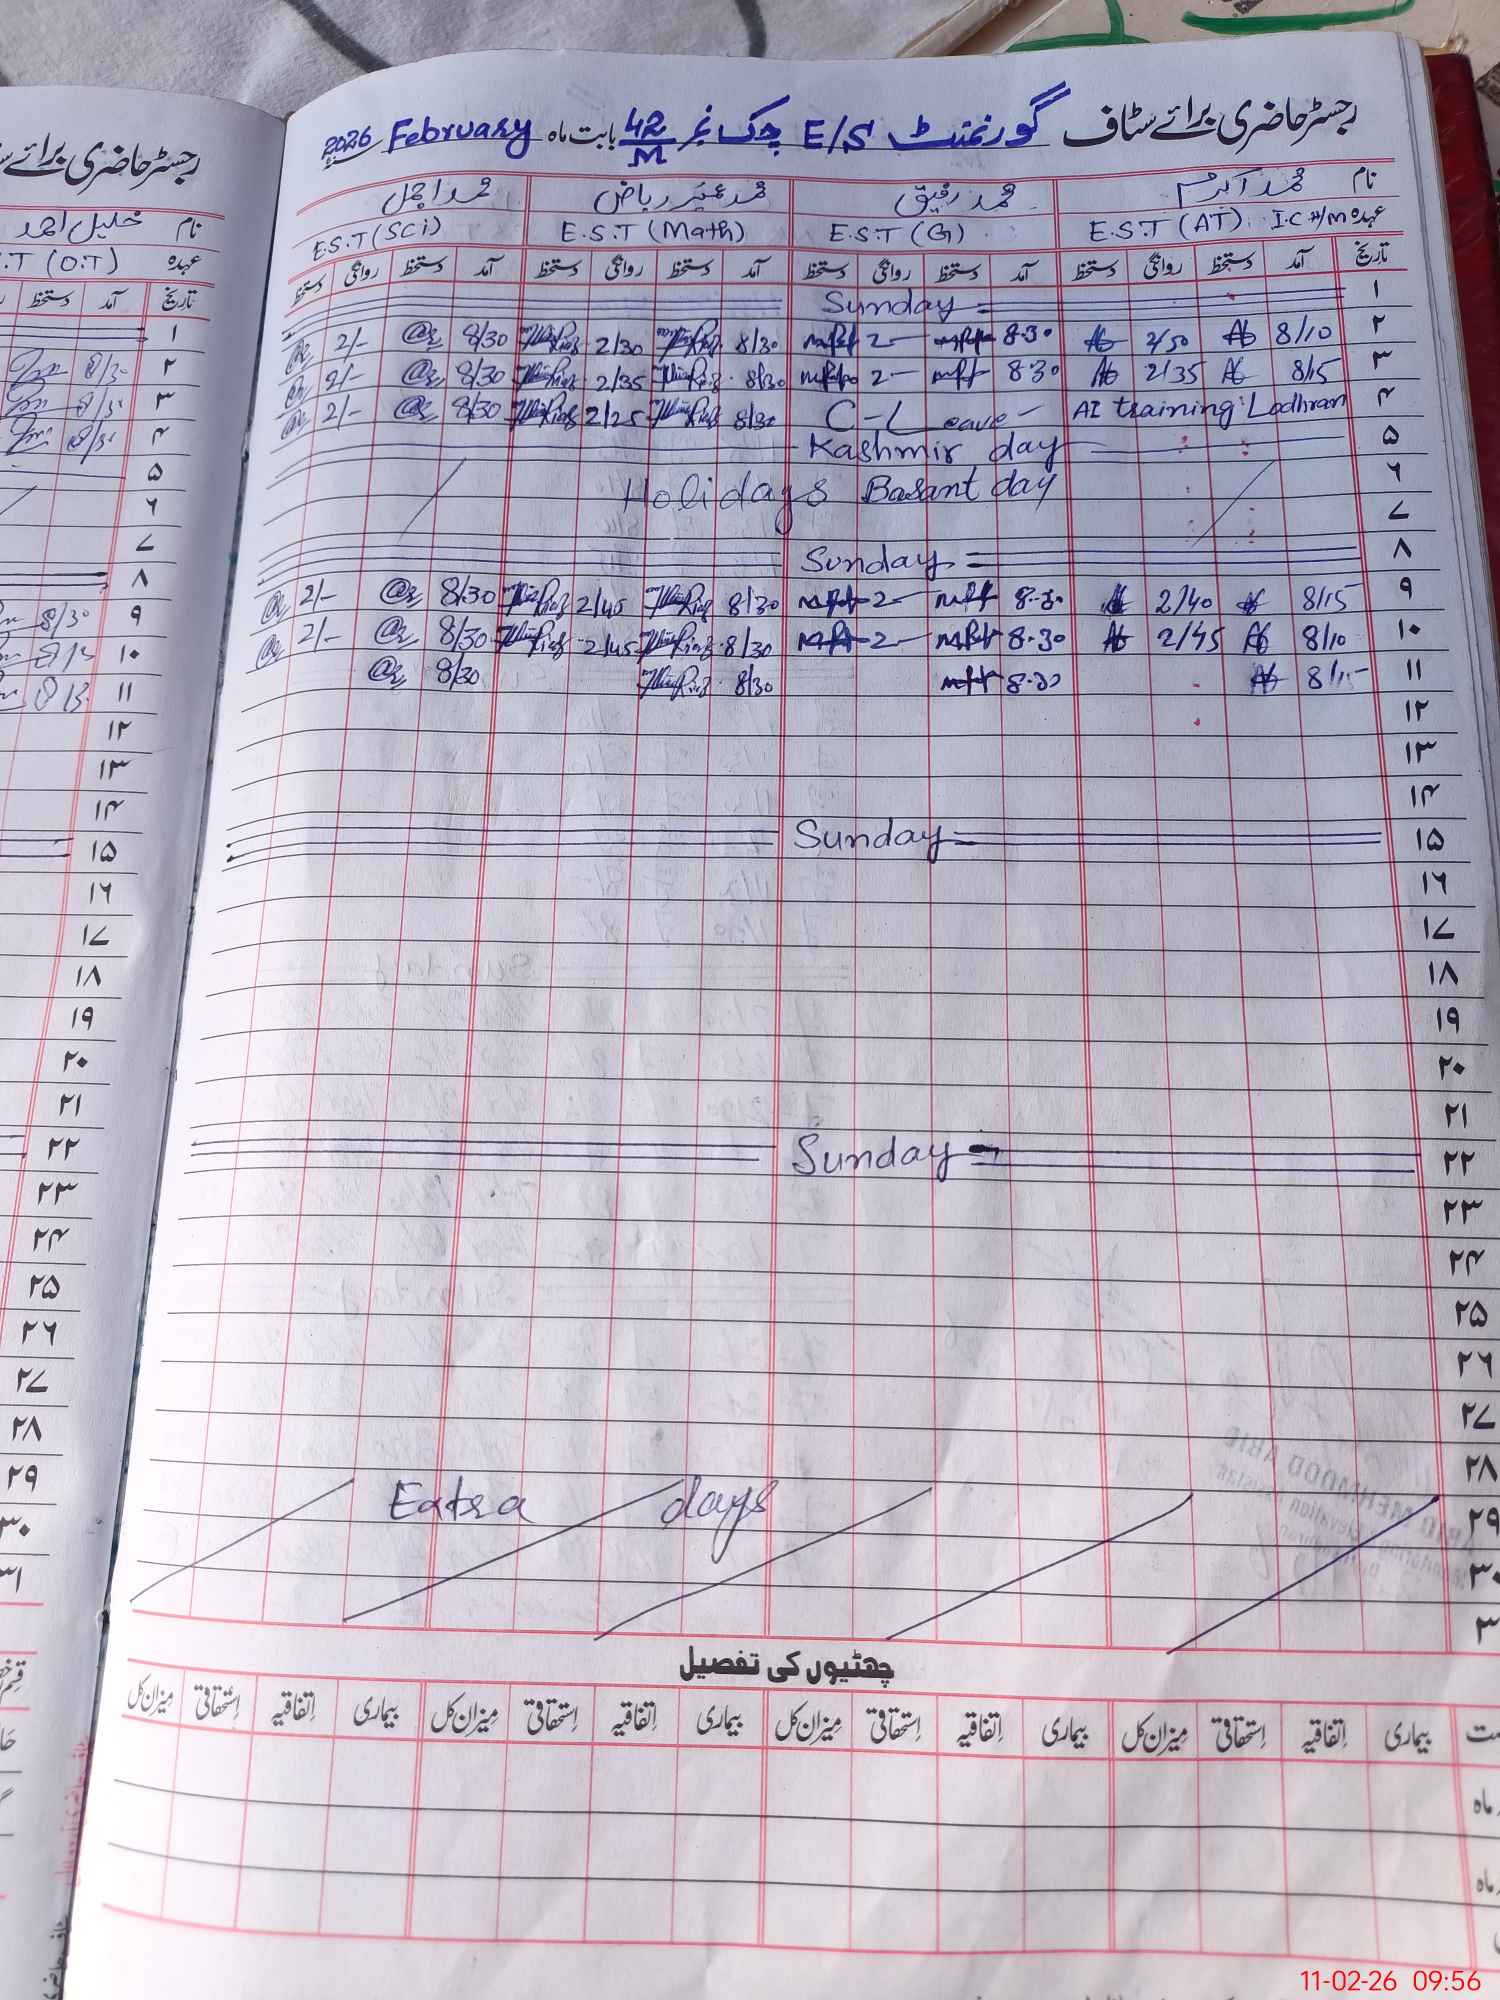 رجسٹر حاضری برائے سٹاف گورنمنٹ E/S چک نمبر 42/M بابت ماہ February 2026
نام محمد اکرم محمد رفیق محمد عمیر ریاض محمد اجمل
عہدہ E.S.T (AT). I.C H/M E.S.T (G) E.S.T (Math) E.S.T (Sci)
تاریخ آمد دستخط روانگی دستخط آمد دستخط روانگی دستخط آمد دستخط روانگی دستخط آمد دستخط روانگی دستخط
۱ Sunday
۲ 8/10 2/50 8.30 2 8/30 2/30 8/30 2/-
۳ 8/15 2/35 8.30 2 8/30 2/35 8/30 2/-
۴ AI training: Lodhran C-Leave 8/30 2/25 8/30 2/-
۵ Kashmir day
۶ Holidays Basant day
۷
۸ Sunday
۹ 8/15 2/40 8.30 2 8/30 2/45 8/30 2/-
۱۰ 8/10 2/45 8.30 2 8/30 2/45 8/30 2/-
۱۱ 8/15 8.30 8/30 8/30
۱۲
۱۳
۱۴
۱۵ Sunday
۱۶
۱۷
۱۸
۱۹
۲۰
۲۱
۲۲ Sunday
۲۳
۲۴
۲۵
۲۶
۲۷
۲۸
۲۹ Extra days
۳۰
۳
چھٹیوں کی تفصیل
بیماری اتفاقیہ استحقاقی میزان کل بیماری اتفاقیہ استحقاقی میزان کل بیماری اتفاقیہ استحقاقی میزان کل بیماری اتفاقیہ استحقاقی میزان کل
ماہ
ماہ
رجسٹر حاضری برائے
نام خلیل احمد
عہدہ .T (O.T)
تاریخ آمد دستخط
۱
۲ 8/30
۳
۴
۵
۶
۷
۸
۹ 8/30
۱۰
۱۱
۱۲
۱۳
۱۴
۱۵
۱۶
۱۷
۱۸
۱۹
۲۰
۲۱
۲۲
۲۳
۲۴
۲۵
۲۶
۲۷
۲۸
۲۹
۳۰
۳۱
11-02-26 09:56